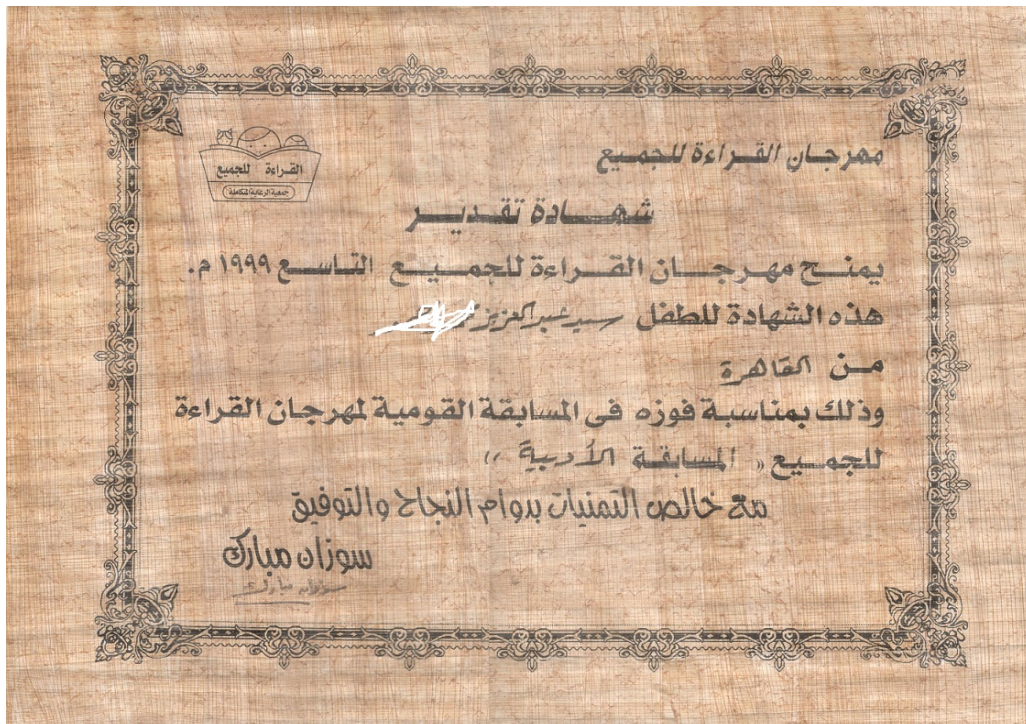 مهرجان القراءة للجميع
القراءة للجميع
جمعية الرعاية المتكاملة
شهادة تقدير
يمنح مهرجان القراءة للجميع التاسع ١٩٩٩ م.
هذه الشهادة للطفل سيد عبد العزيز
من القاهرة
وذلك بمناسبة فوزه فى المسابقة القومية لمهرجان القراءة
للجميع " المسابقة الأدبية "
مع خالص التمنيات بدوام النجاح والتوفيق
سوزان مبارك
سوزان مبارك